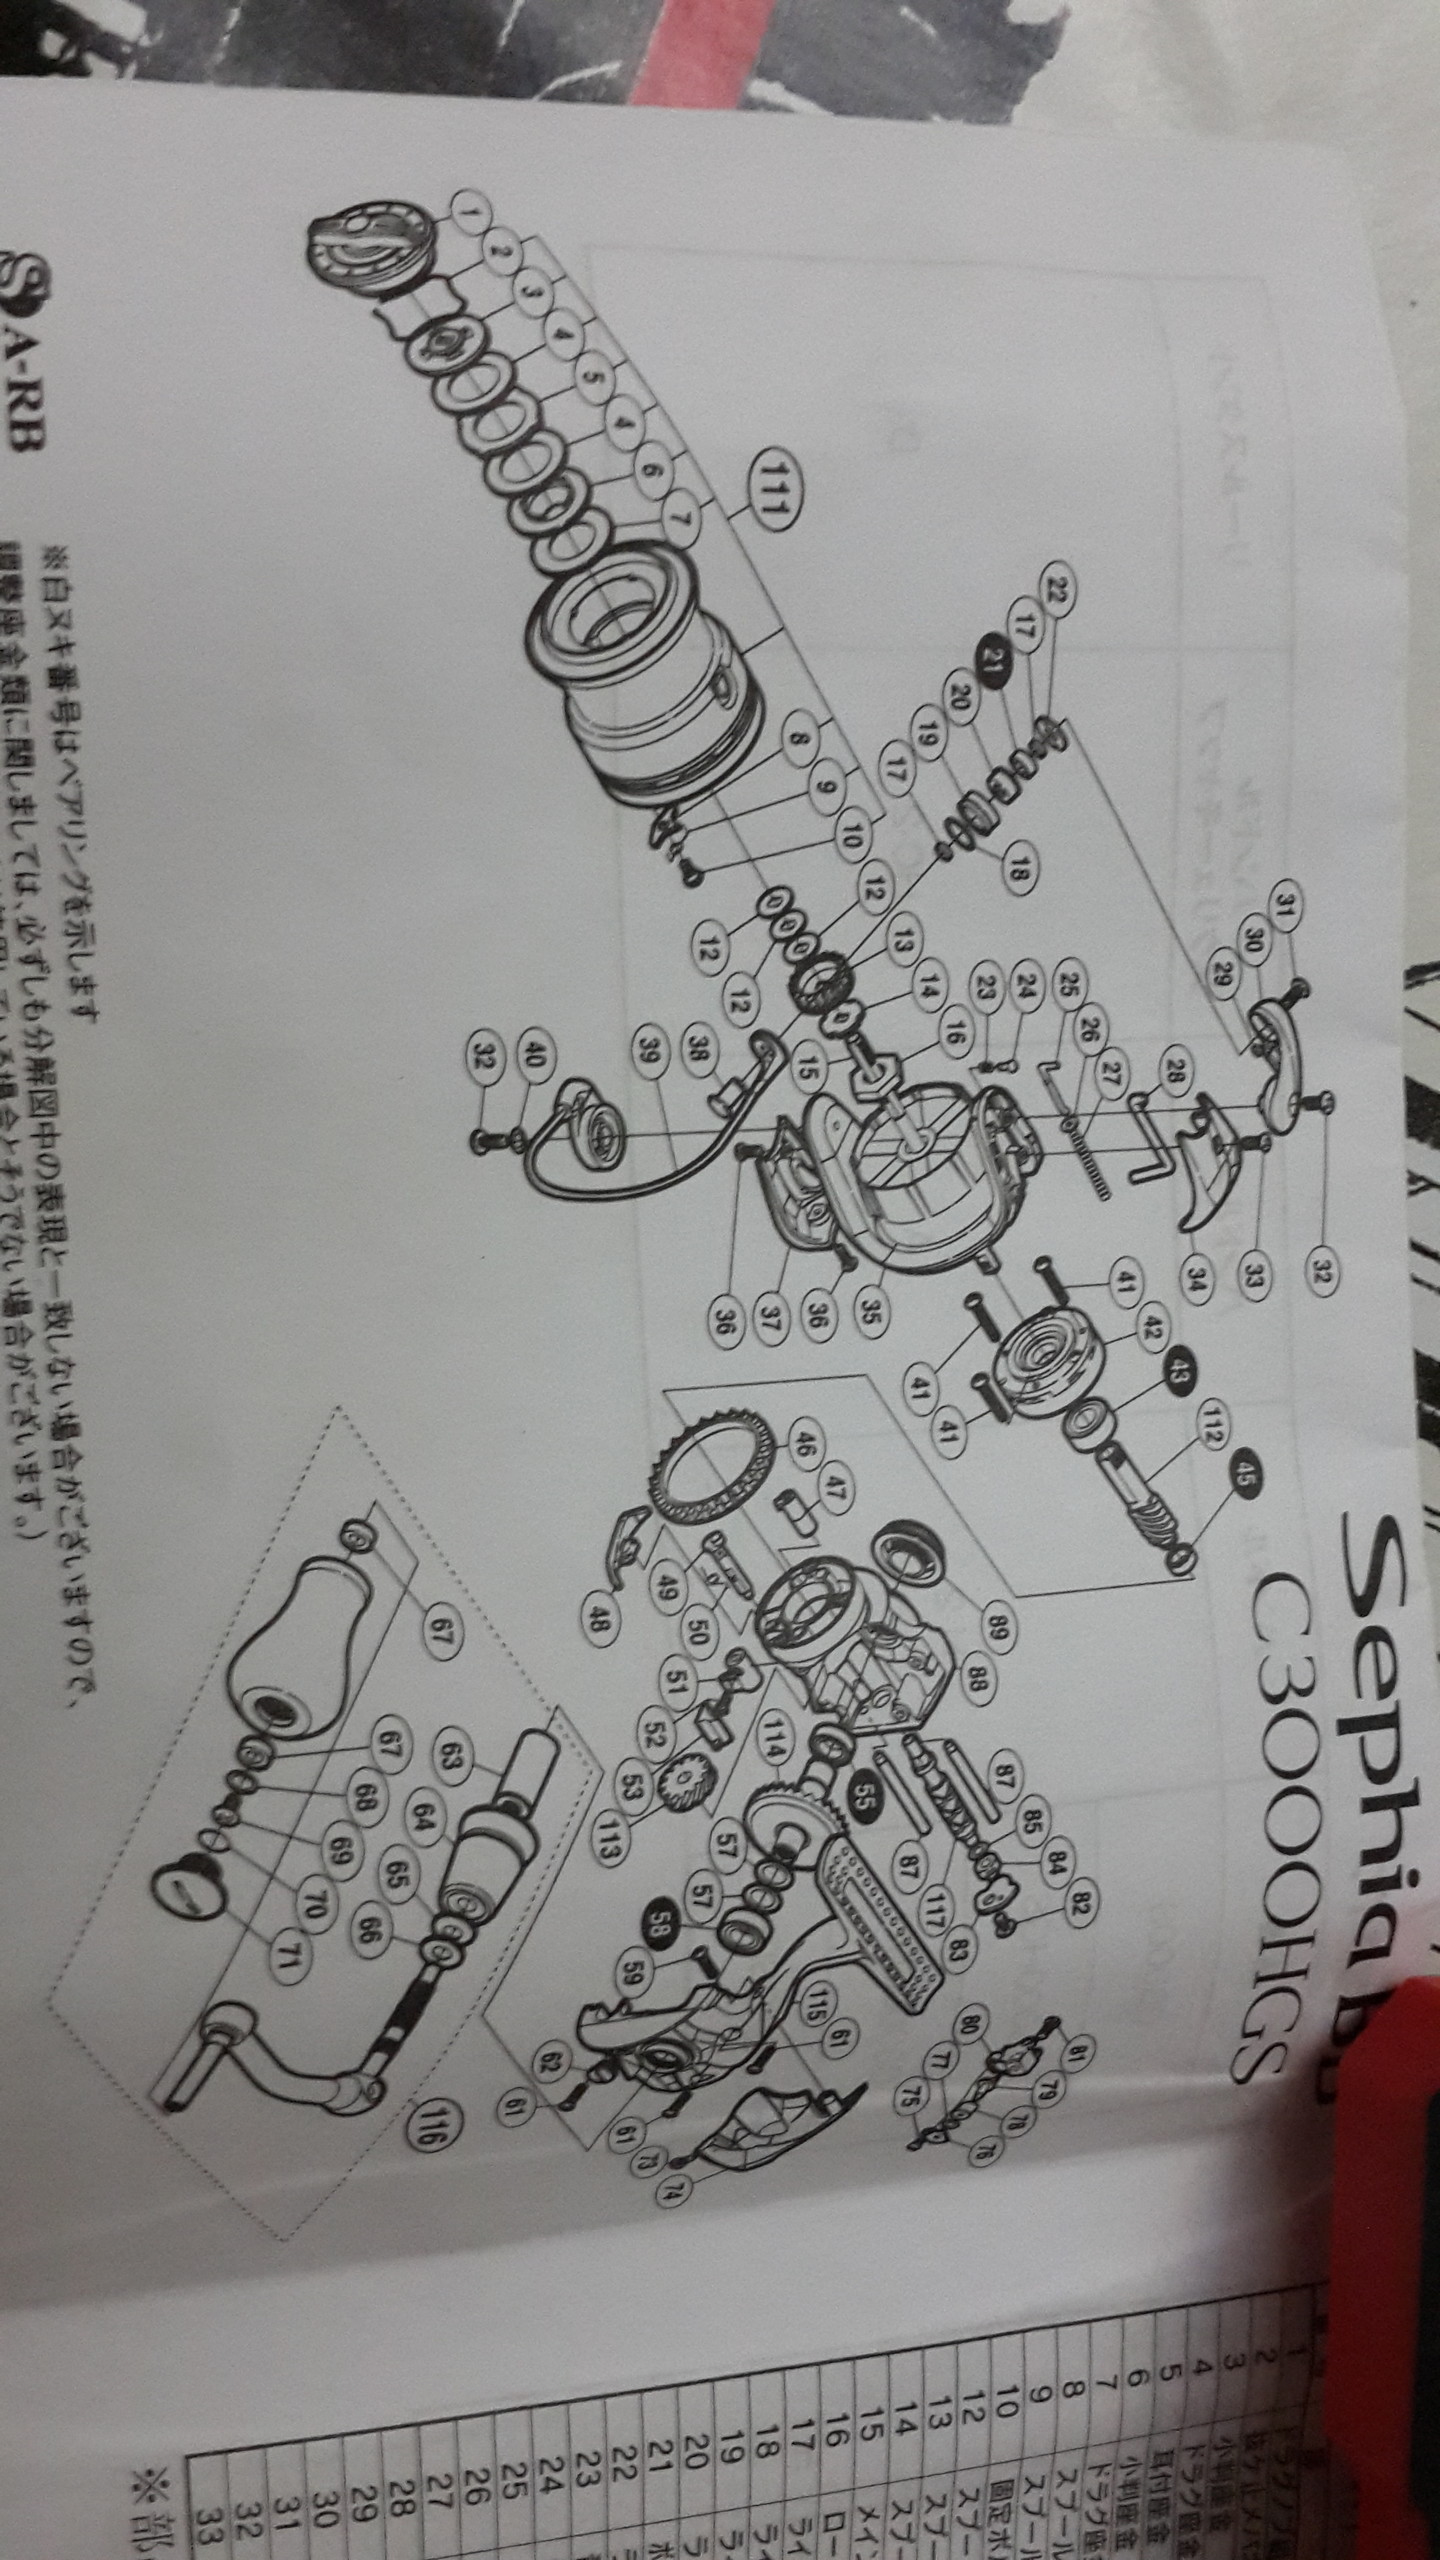 Sephia
C3000HGS
1
2
3
4
5
4
6
7
111
8
9
10
12
12
12
13
14
15
16
17
17
18
19
20
21
22
23
24
25
26
27
28
29
30
31
32
33
34
35
36
36
37
38
39
40
32
41
41
41
42
43
112
45
46
47
48
49
50
51
52
53
113
114
55
57
57
58
59
115
61
61
61
62
63
64
65
66
67
67
68
69
70
71
116
73
74
75
76
77
78
79
80
81
82
83
84
85
117
87
87
88
89
A-RB
※白ヌキ番号はベアリングを示します
調整座金類に関しましては、必ずしも分解図中の表現と一致しない場合がございますので、
場合とそうでない場合がございます。)
1
2
3 小判座金
4 ドラグ座金
5 耳付座金
6 小判座金
7 ドラグ座
8 スプール
9 スプール
10 固定ボ
12 スプー
13 スプー
14 スプ
15 メイン
16 ロー
17 ライ
18 ライ
19 ライ
20 ラ
21 ボ
22 ラ
23
24
25
26
27
28
29
30
31
32
33
※部